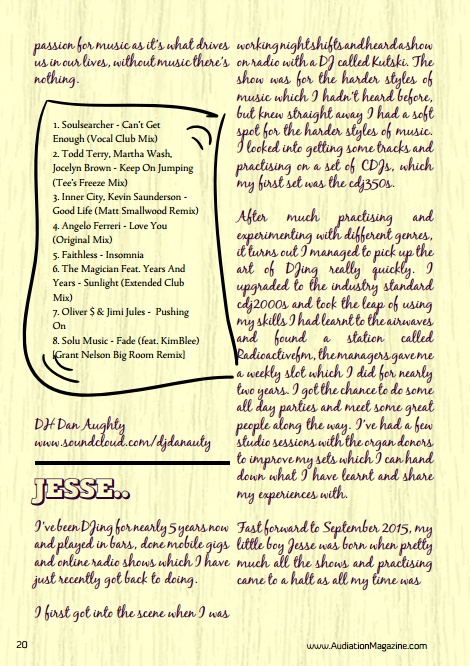 passion for music as it's what drives
us in our lives, without music there's
nothing.
1. Soulsearcher - Can't Get
Enough (Vocal Club Mix)
2. Todd Terry, Martha Wash,
Jocelyn Brown - Keep On Jumping
(Tee's Freeze Mix)
3. Inner City, Kevin Saunderson -
Good Life (Matt Smallwood Remix)
4. Angelo Ferreri - Love You
(Original Mix)
5. Faithless - Insomnia
6. The Magician Feat. Years And
Years - Sunlight (Extended Club
Mix)
7. Oliver $ & Jimi Jules - Pushing
On
8. Solu Music - Fade (feat. KimBlee)
[Grant Nelson Big Room Remix]
DH Dan Aughty
www.soundcloud.com/djdanauty
JESSE..
I've been DJing for nearly 5 years now
and played in bars, done mobile gigs
and online radio shows which I have
just recently got back to doing.
I first got into the scene when I was
working night shifts and heard a show
on radio with a DJ called Kutski. The
show was for the harder styles of
music which I hadn't heard before,
but knew straight away I had a soft
spot for the harder styles of music.
I looked into getting some tracks and
practising on a set of CDJs, which
my first set was the cdj350s.
After much practising and
experimenting with different genres,
it turns out I managed to pick up the
art of DJing really quickly. I
upgraded to the industry standard
cdj2000s and took the leap of using
my skills I had learnt to the airwaves
and found a station called
Radioactivefm, the managers gave me
a weekly slot which I did for nearly
two years. I got the chance to do some
all day parties and meet some great
people along the way. I've had a few
studio sessions with the organ donors
to improve my sets which I can hand
down what I have learnt and share
my experiences with.
Fast forward to September 2015, my
little boy Jesse was born when pretty
much all the shows and practising
came to a halt as all my time was
20
www.AudiationMagazine.com